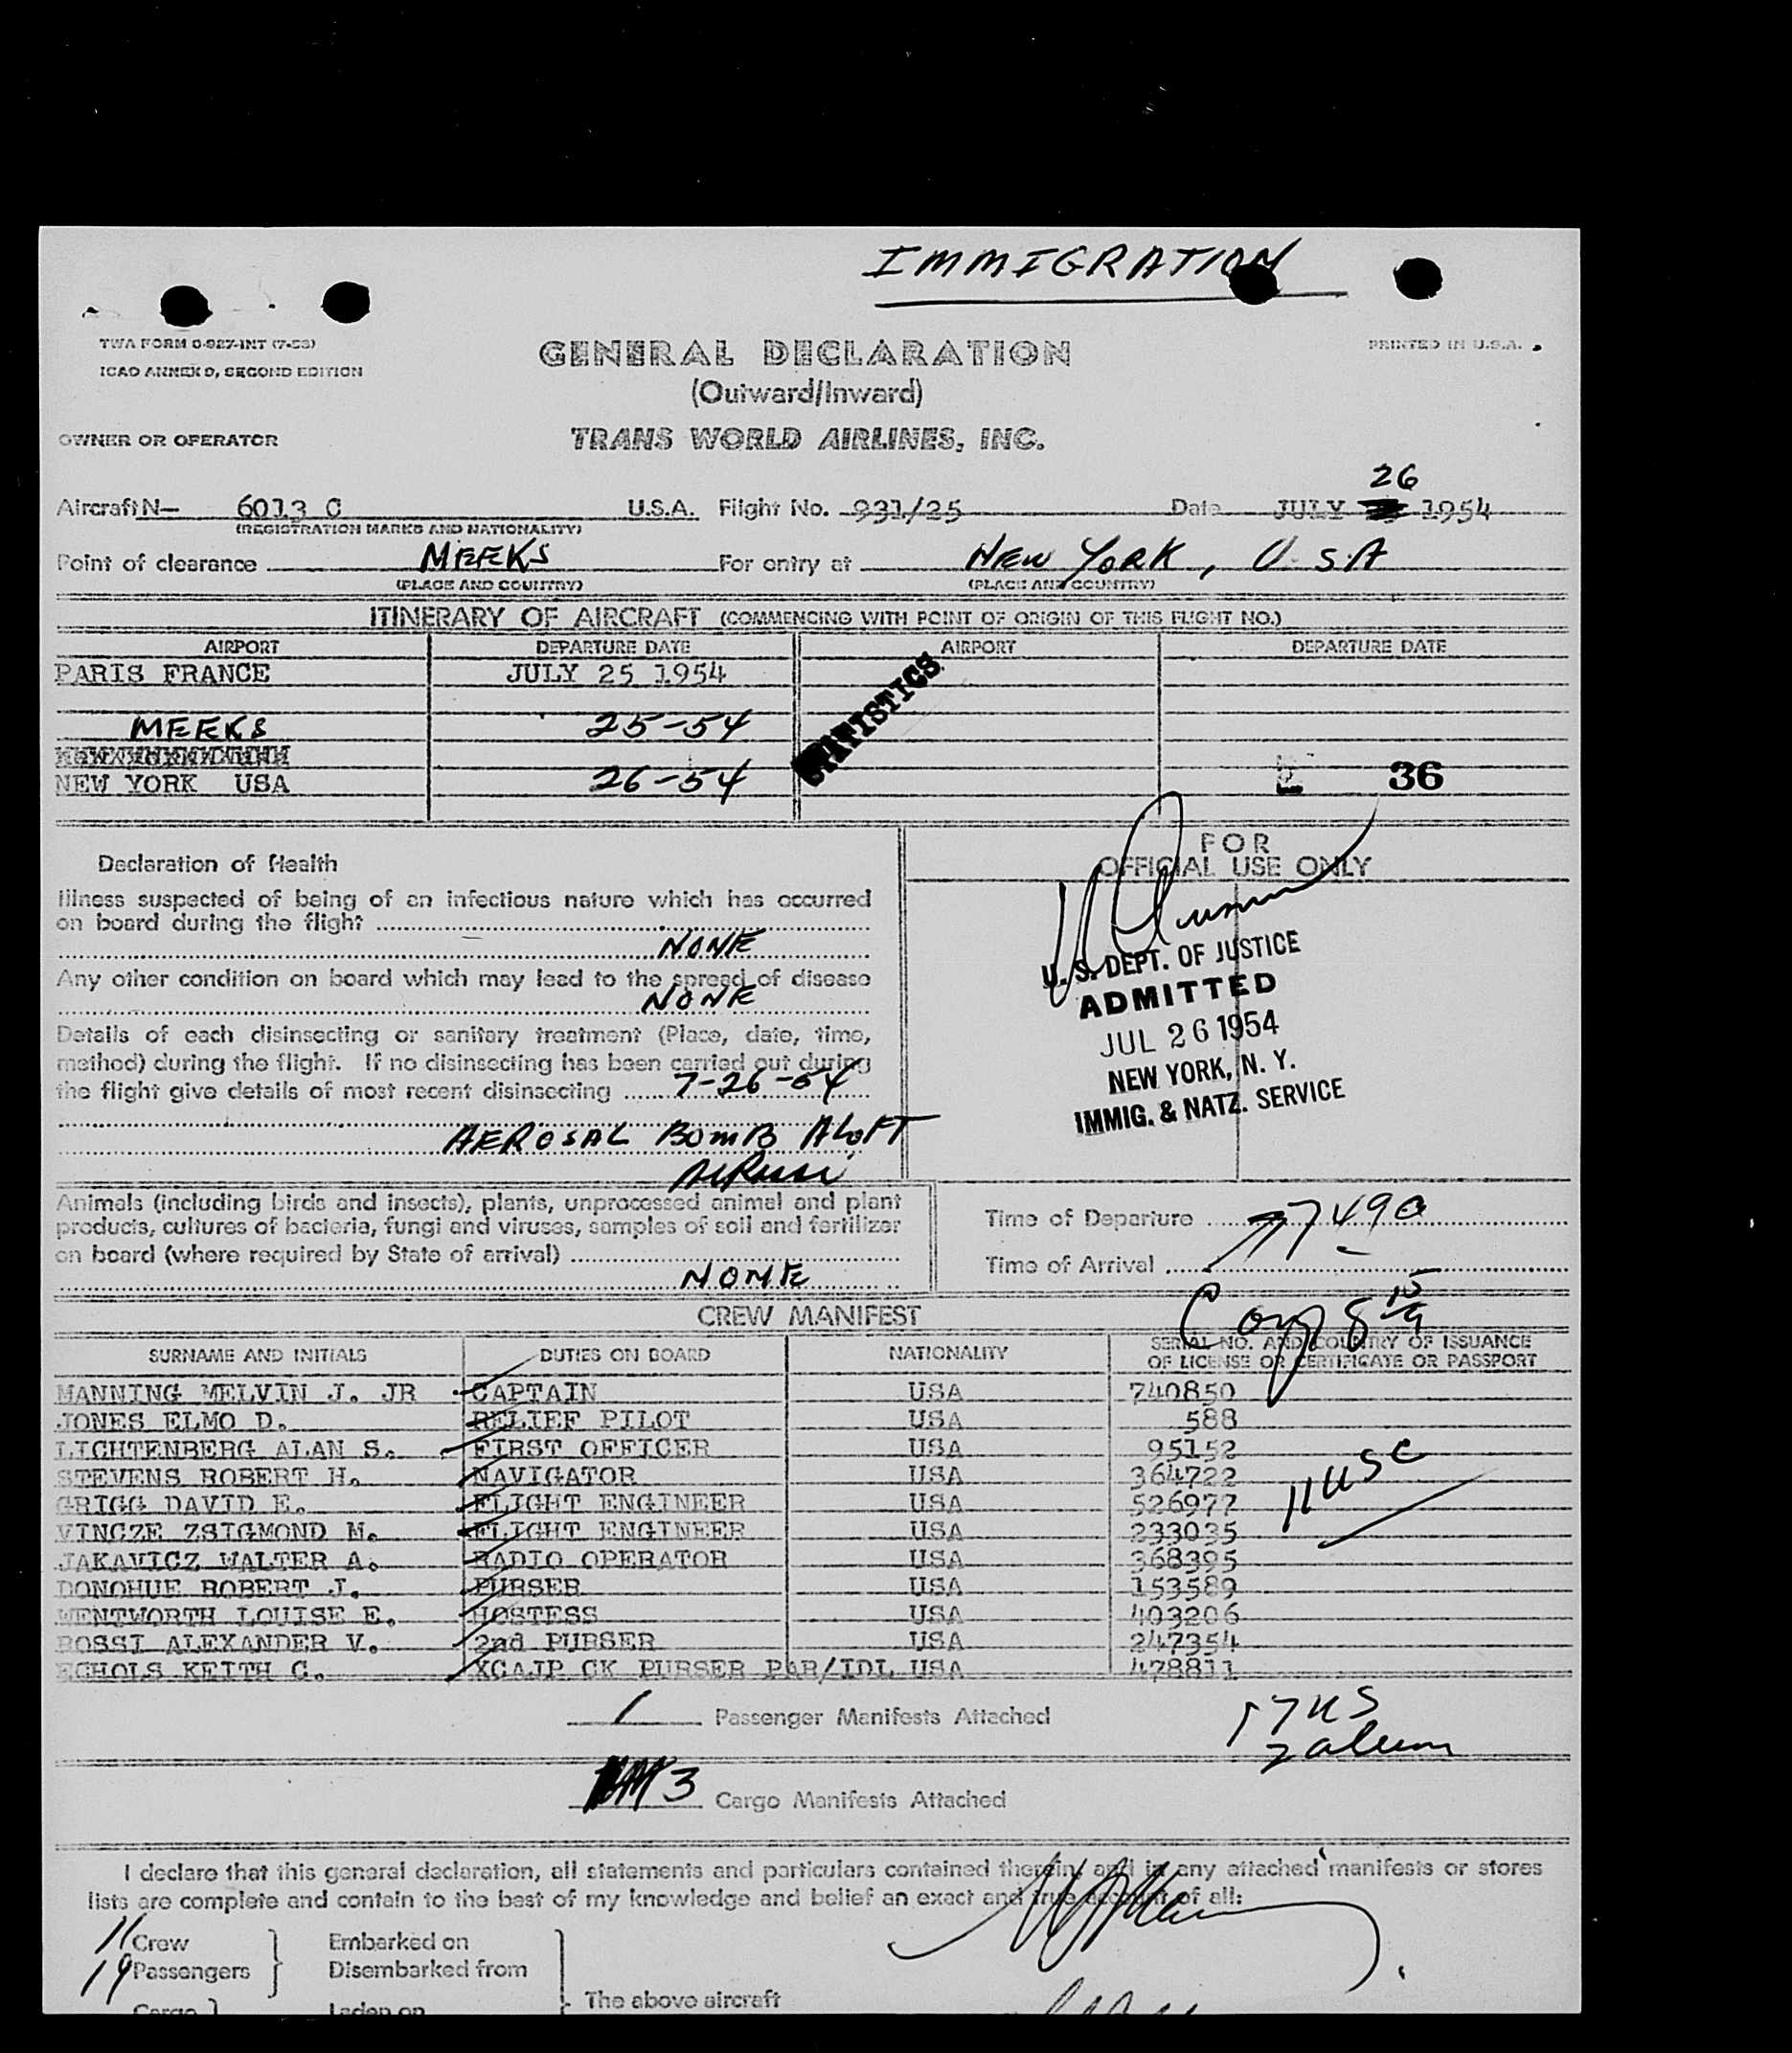 IMMIGRATION
TWA FORM O-927-INT (7-53)
PRINTED IN U.S.A.
ICAO ANNEX 9, SECOND EDITION
GENERAL DECLARATION
(Outward/Inward)
OWNER OR OPERATOR
TRANS WORLD AIRLINES, INC.
26
Aircraft N— 6013 C U.S.A. Flight No. 931/25 Date JULY 1954
(REGISTRATION MARKS AND NATIONALITY)
Point of clearance MEEKS For entry at NEW YORK, U.S.A
(PLACE AND COUNTRY) (PLACE AND COUNTRY)
ITINERARY OF AIRCRAFT (COMMENCING WITH POINT OF ORIGIN OF THIS FLIGHT NO.)
AIRPORT DEPARTURE DATE AIRPORT DEPARTURE DATE
PARIS FRANCE JULY 25 1954
STATISTICS
MEEKS 25-54
NEW YORK USA 26-54
36
FOR
OFFICIAL USE ONLY
Declaration of Health
Illness suspected of being of an infectious nature which has occurred
on board during the flight
NONE
Any other condition on board which may lead to the spread of disease
NONE
Details of each disinsecting or sanitary treatment (Place, date, time,
method) during the flight. If no disinsecting has been carried out during
the flight give details of most recent disinsecting 7-26-54
AEROSAL BOMB ALOFT
U. S. DEPT. OF JUSTICE
ADMITTED
JUL 26 1954
NEW YORK, N. Y.
IMMIG. & NATZ. SERVICE
Animals (including birds and insects), plants, unprocessed animal and plant
products, cultures of bacteria, fungi and viruses, samples of soil and fertilizer
on board (where required by State of arrival)
NONE
Time of Departure
Time of Arrival
CREW MANIFEST
SURNAME AND INITIALS DUTIES ON BOARD NATIONALITY SERIAL NO. AND COUNTRY OF ISSUANCE
OF LICENSE OR CERTIFICATE OR PASSPORT
MANNING MELVIN J. JR CAPTAIN USA 740850
JONES ELMO D. RELIEF PILOT USA 588
LICHTENBERG ALAN S. FIRST OFFICER USA 95152
STEVENS ROBERT H. NAVIGATOR USA 364722
GRIGG DAVID E. FLIGHT ENGINEER USA 526977
VINCZE ZSIGMOND M. FLIGHT ENGINEER USA 233035
JAKAVICZ WALTER A. RADIO OPERATOR USA 368395
DONOHUE ROBERT J. PURSER USA 153589
WENTWORTH LOUISE E. HOSTESS USA 403206
ROSSI ALEXANDER V. 2nd PURSER USA 247354
ECHOLS KEITH C. XCAJP CK PURSER PAR/IDL USA 478811
11 USC
1 Passenger Manifests Attached
17 US
2 alien
3 Cargo Manifests Attached
I declare that this general declaration, all statements and particulars contained therein, and in any attached manifests or stores
lists are complete and contain to the best of my knowledge and belief an exact and true account of all:
11 Crew Embarked on
19 Passengers Disembarked from
The above aircraft
Cargo Laden on